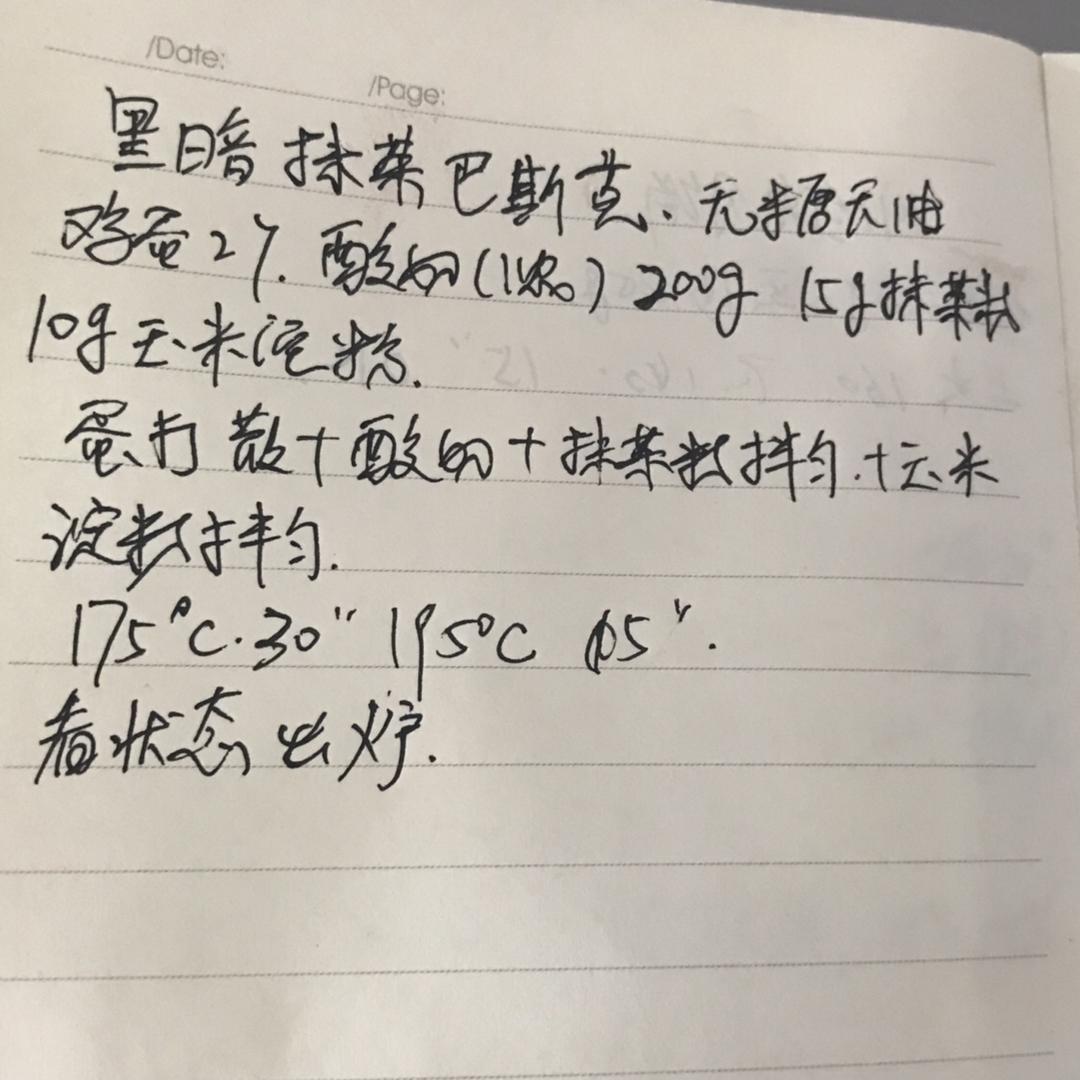 /Date:
/Page:
黑暗抹茶巴斯克.无糖无油
鸡蛋2个.酸奶(浓)200g 15g抹茶粉
10g玉米淀粉.
蛋打散+酸奶+抹茶粉拌匀.+玉米
淀粉拌匀.
175°C.30" 195°C 15".
看状态出炉.